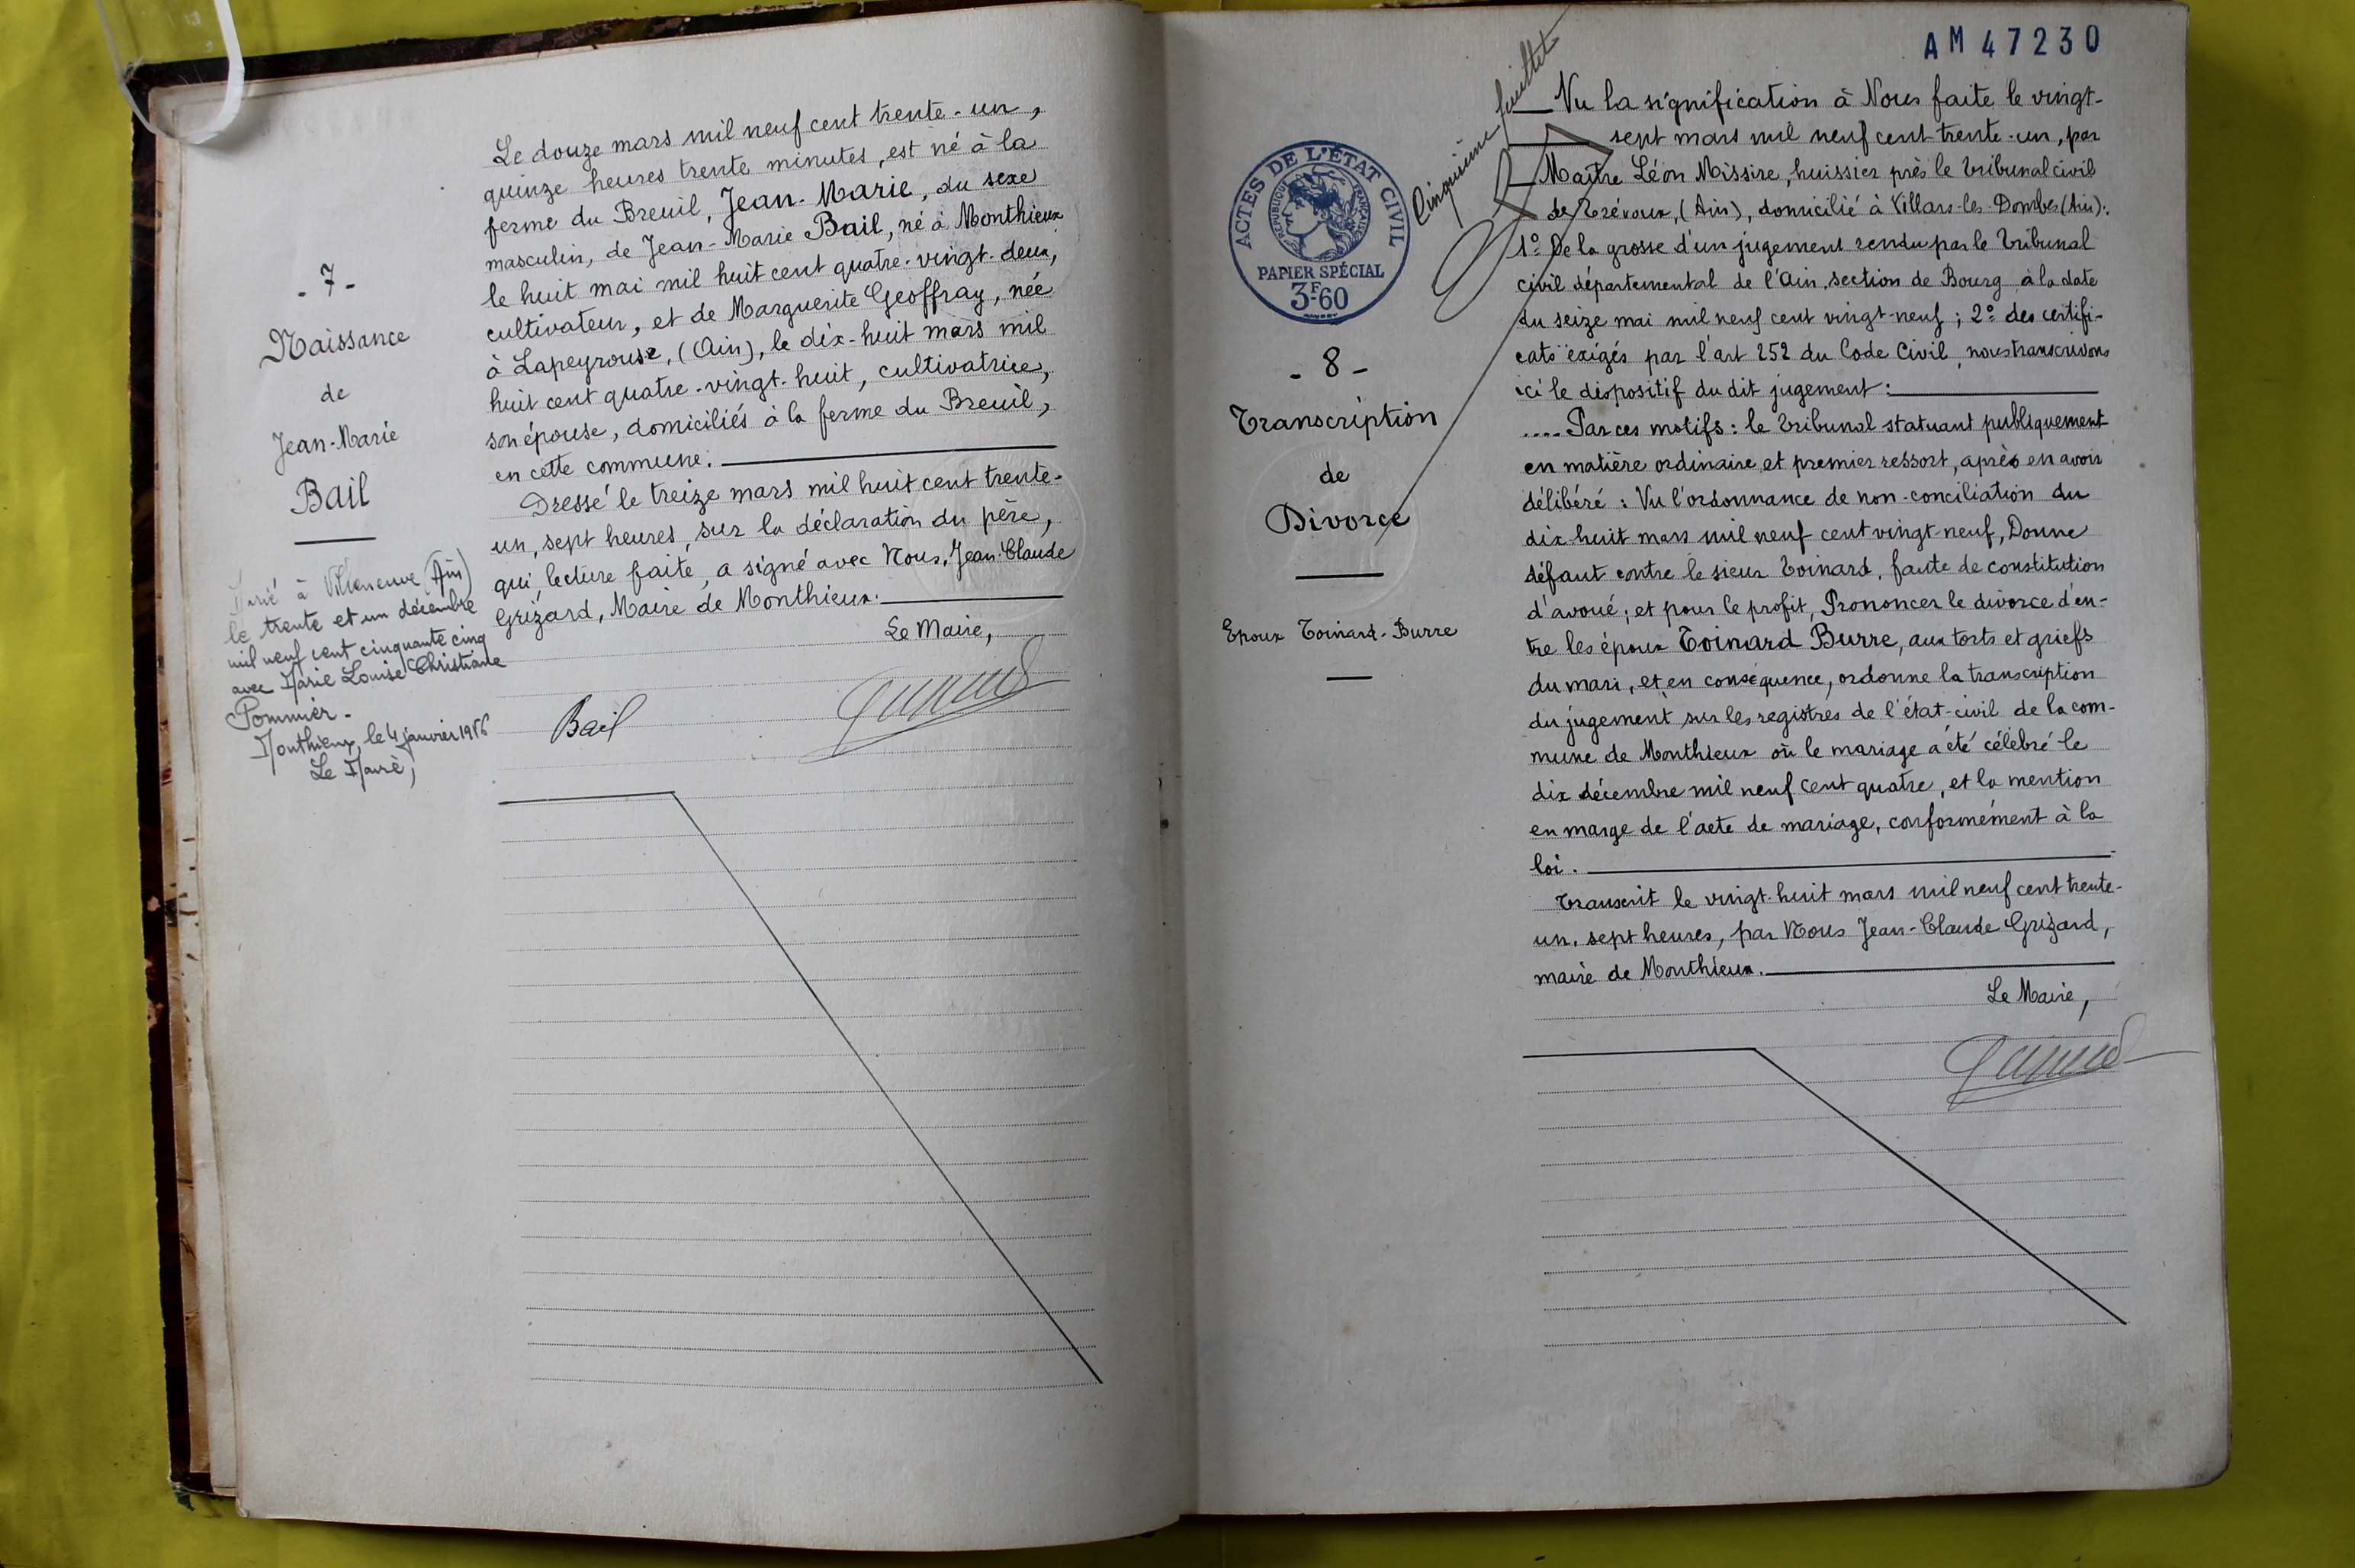 - 7 -
Naissance
de
Jean-Marie
Bail
Marié à Villeneuve (Ain)
le trente et un décembre
mil neuf cent cinquante cinq
avec Marie Louise Christiane
Pommier -
Monthieux, le 4 janvier 1956
Le Maire,
Le douze mars mil neuf cent trente-un,
quinze heures trente minutes, est né à la
ferme du Breuil, Jean-Marie, du sexe
masculin, de Jean-Marie Bail, né à Monthieux
le huit mai mil huit cent quatre-vingt-deux,
cultivateur, et de Marguerite Geoffray, née
à Lapeyrouse, (Ain), le dix-huit mars mil
huit cent quatre-vingt-huit, cultivatrice,
son épouse, domiciliés à la ferme du Breuil,
en cette commune.
Dressé le treize mars mil huit cent trente-
un, sept heures, sur la déclaration du père,
qui lecture faite, a signé avec Nous, Jean-Claude
Grizard, Maire de Monthieux.
Le Maire,
Bail
AM 47230
Cinquième feuillet
ACTES DE L'ÉTAT CIVIL
REPUBLIQUE FRANÇAISE
PAPIER SPÉCIAL
3F.60
- 8 -
Transcription
de
Divorce
Epoux Toinard-Burre
Vu la signification à Nous faite le vingt-
sept mars mil neuf cent trente-un, par
Maître Léon Missire, huissier près le Tribunal civil
de Trévoux, (Ain), domicilié à Villars-les-Dombes (Ain):
1º De la grosse d'un jugement rendu par le Tribunal
civil départemental de l'Ain, section de Bourg à la date
du seize mai mil neuf cent vingt-neuf; 2º des certifi-
cats exigés par l'art 252 du Code Civil, nous transcrivons
ici le dispositif du dit jugement:
.... Par ces motifs: le Tribunal statuant publiquement
en matière ordinaire et premier ressort, après en avoir
délibéré: Vu l'ordonnance de non-conciliation du
dix-huit mars mil neuf cent vingt-neuf, Donne
défaut contre le sieur Toinard, faute de constitution
d'avoué; et pour le profit, Prononcer le divorce d'en-
tre les époux Toinard Burre, aux torts et griefs
du mari, et en conséquence, ordonne la transcription
du jugement sur les registres de l'état-civil de la com-
mune de Monthieux où le mariage a été célébré le
dix décembre mil neuf cent quatre, et la mention
en marge de l'acte de mariage, conformément à la
loi.
Transcrit le vingt-huit mars mil neuf cent trente-
un, sept heures, par Nous Jean-Claude Grizard,
maire de Monthieux.
Le Maire,